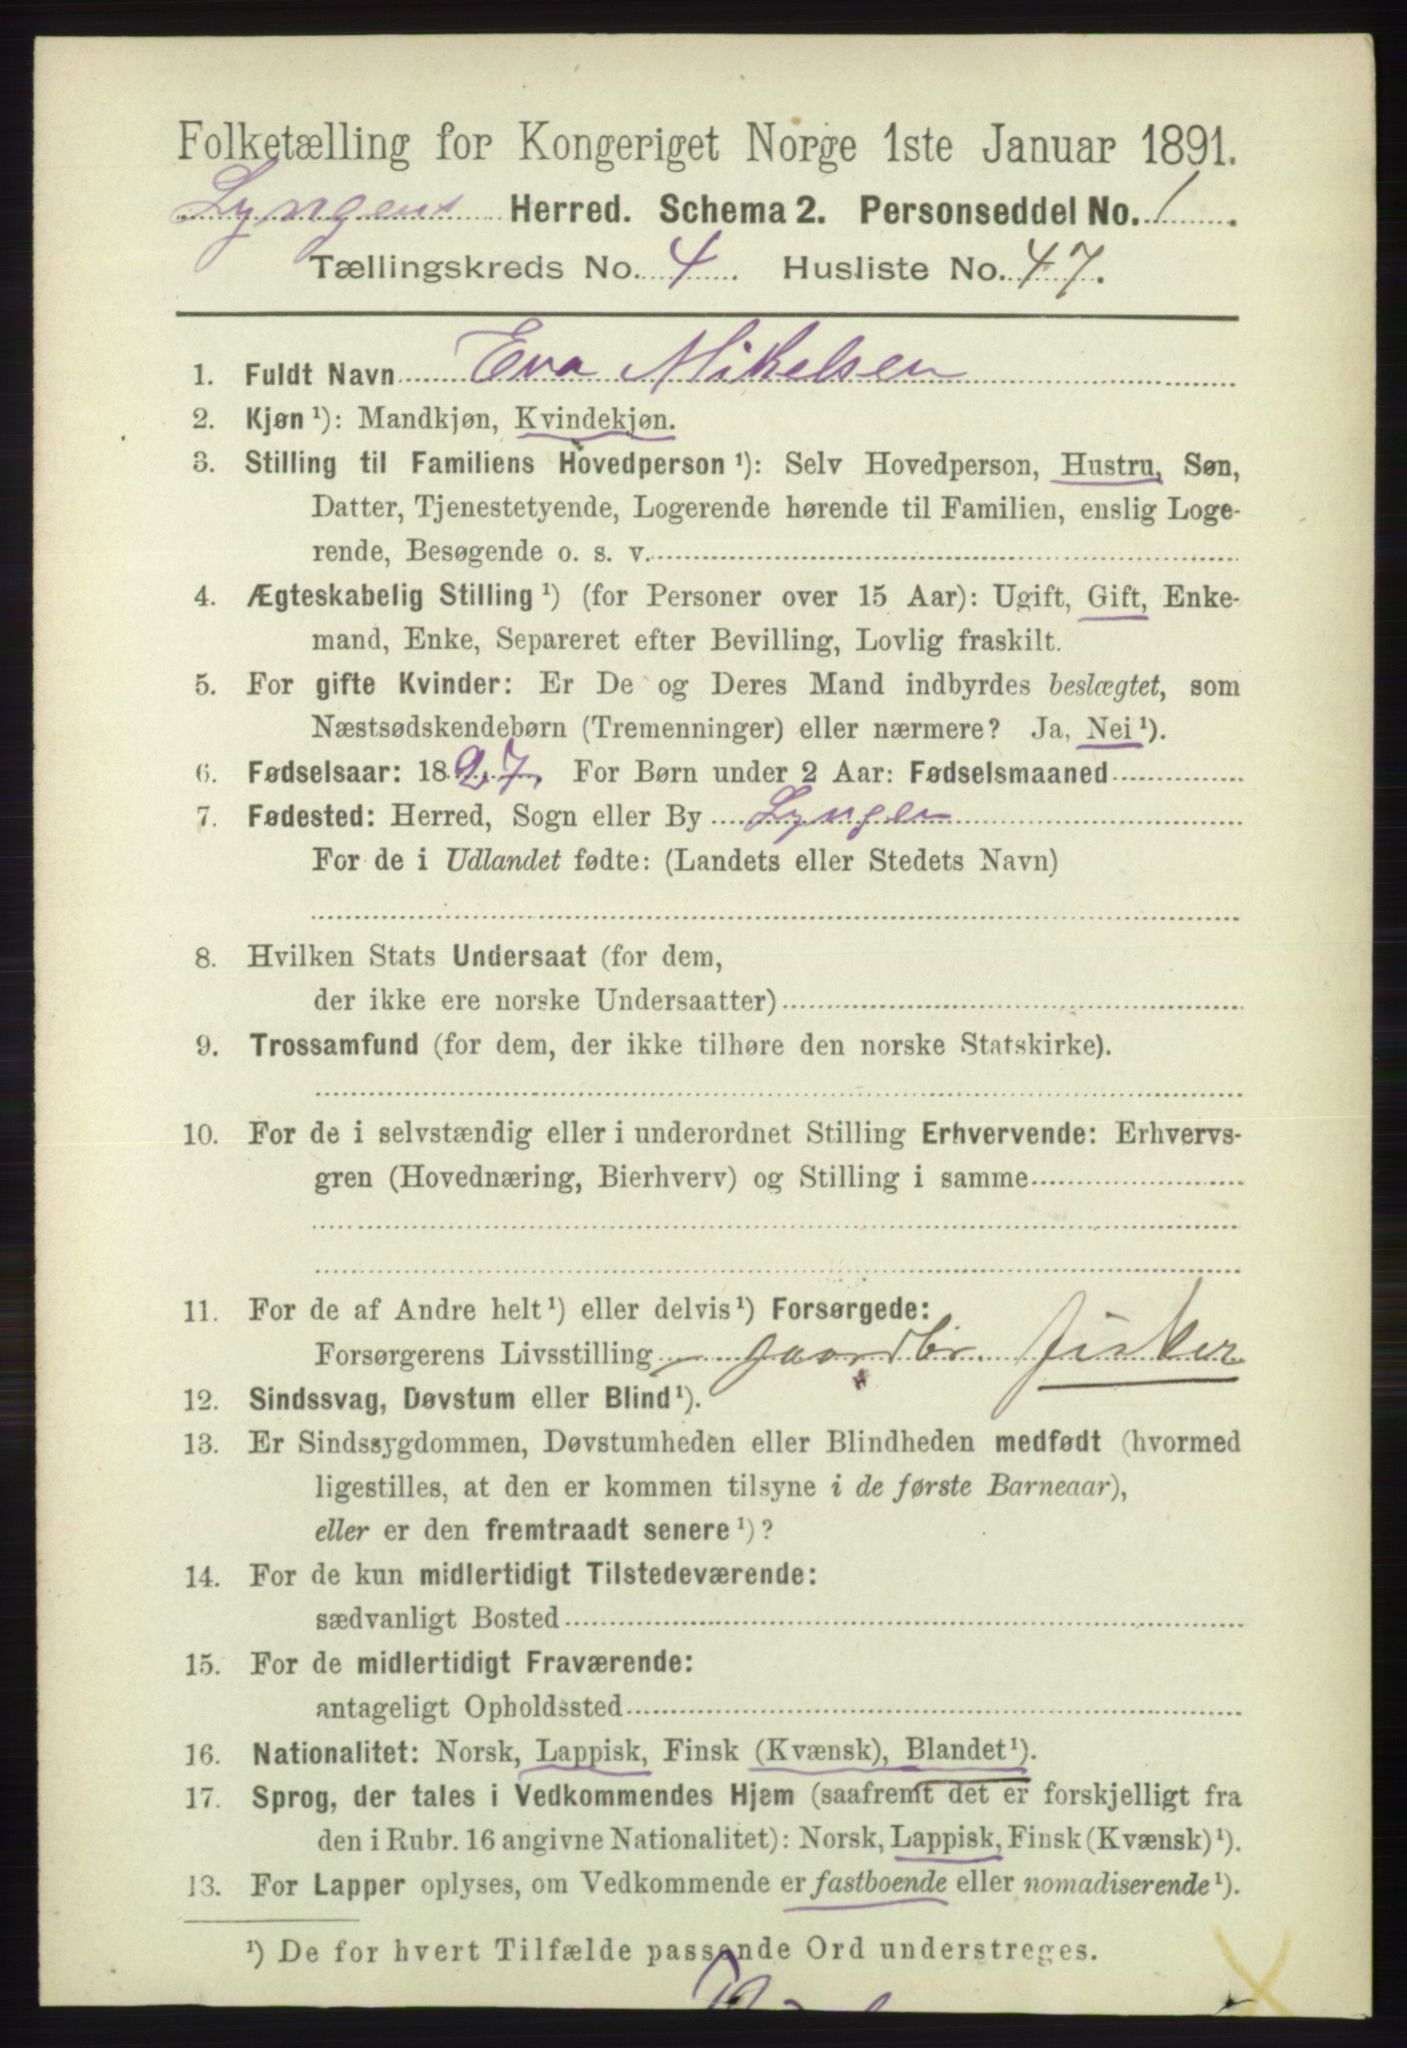 Folketælling for Kongeriget Norge 1ste Januar 1891.
Lyngens Herred. Schema 2. Personseddel No. 1.
Tællingskreds No. 4. Husliste No. 47.
1. Fuldt Navn Eva Mikelsen
2. Kjøn ¹): Mandkjøn, Kvindekjøn.
3. Stilling til Familiens Hovedperson ¹): Selv Hovedperson, Hustru, Søn,
Datter, Tjenestetyende, Logerende hørende til Familien, enslig Loge-
rende, Besøgende o. s. v.
4. Ægteskabelig Stilling ¹) (for Personer over 15 Aar): Ugift, Gift, Enke-
mand, Enke, Separeret efter Bevilling, Lovlig fraskilt.
5. For gifte Kvinder: Er De og Deres Mand indbyrdes beslægtet, som
Næstsødskendebørn (Tremenninger) eller nærmere? Ja, Nei ¹).
6. Fødselsaar: 1827. For Børn under 2 Aar: Fødselsmaaned
7. Fødested: Herred, Sogn eller By Lyngen
For de i Udlandet fødte: (Landets eller Stedets Navn)
8. Hvilken Stats Undersaat (for dem,
der ikke ere norske Undersaatter)
9. Trossamfund (for dem, der ikke tilhøre den norske Statskirke).
10. For de i selvstændig eller i underordnet Stilling Erhvervende: Erhvervs-
gren (Hovednæring, Bierhverv) og Stilling i samme
11. For de af Andre helt ¹) eller delvis ¹) Forsørgede:
Forsørgerens Livsstilling gaardbr. fisker
12. Sindssvag, Døvstum eller Blind ¹).
13. Er Sindssygdommen, Døvstumheden eller Blindheden medfødt (hvormed
ligestilles, at den er kommen tilsyne i de første Barneaar),
eller er den fremtraadt senere ¹)?
14. For de kun midlertidigt Tilstedeværende:
sædvanligt Bosted
15. For de midlertidigt Fraværende:
antageligt Opholdssted
16. Nationalitet: Norsk, Lappisk, Finsk (Kvænsk), Blandet ¹).
17. Sprog, der tales i Vedkommendes Hjem (saafremt det er forskjelligt fra
den i Rubr. 16 angivne Nationalitet): Norsk, Lappisk, Finsk (Kvænsk) ¹).
13. For Lapper oplyses, om Vedkommende er fastboende eller nomadiserende ¹).
¹) De for hvert Tilfælde passende Ord understreges.